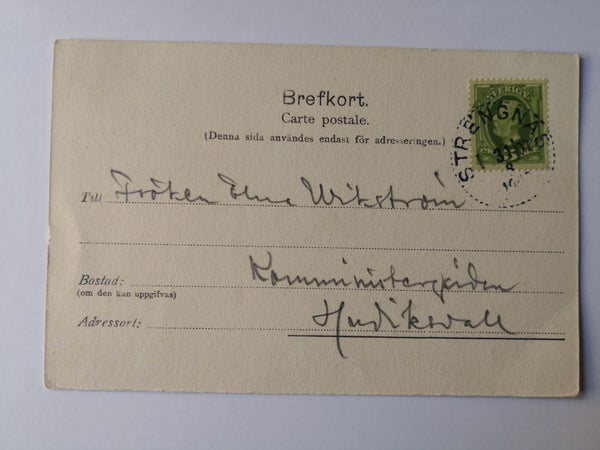 Brefkort.
Carte postale.
(Denna sida användes endast för adresseringen.)
SVERIGE
STRENGNÄS
Till Fröken Elna Wikström
Bostad: Komministergården
(om den kan uppgifvas)
Adressort: Hudiksvall